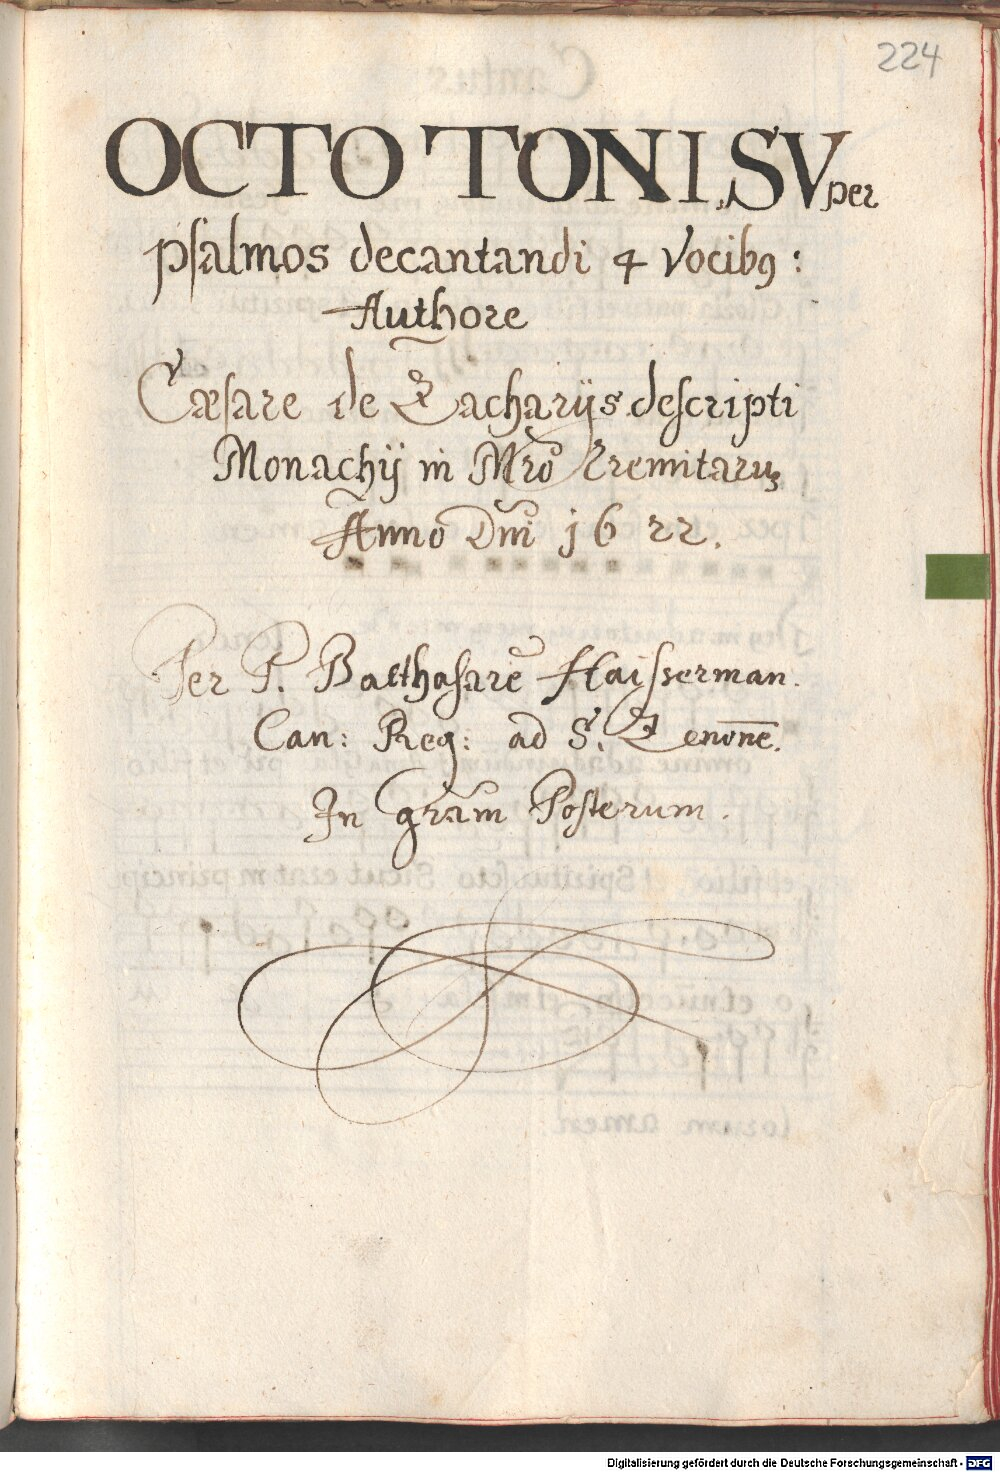 224
OCTO TONI, SVper
psalmos decantandi 4 Vocibꝰ:
Authore
Cæsare de Zacharijs descripti
Monachij in Mrō Eremitaruꝫ
Anno Dm̄ 1622.
Per P. Balthasarē Haisserman.
Can: Reg: ad S. Zenonē.
In grām Posterum.
Digitalisierung gefördert durch die Deutsche Forschungsgemeinschaft - DFG